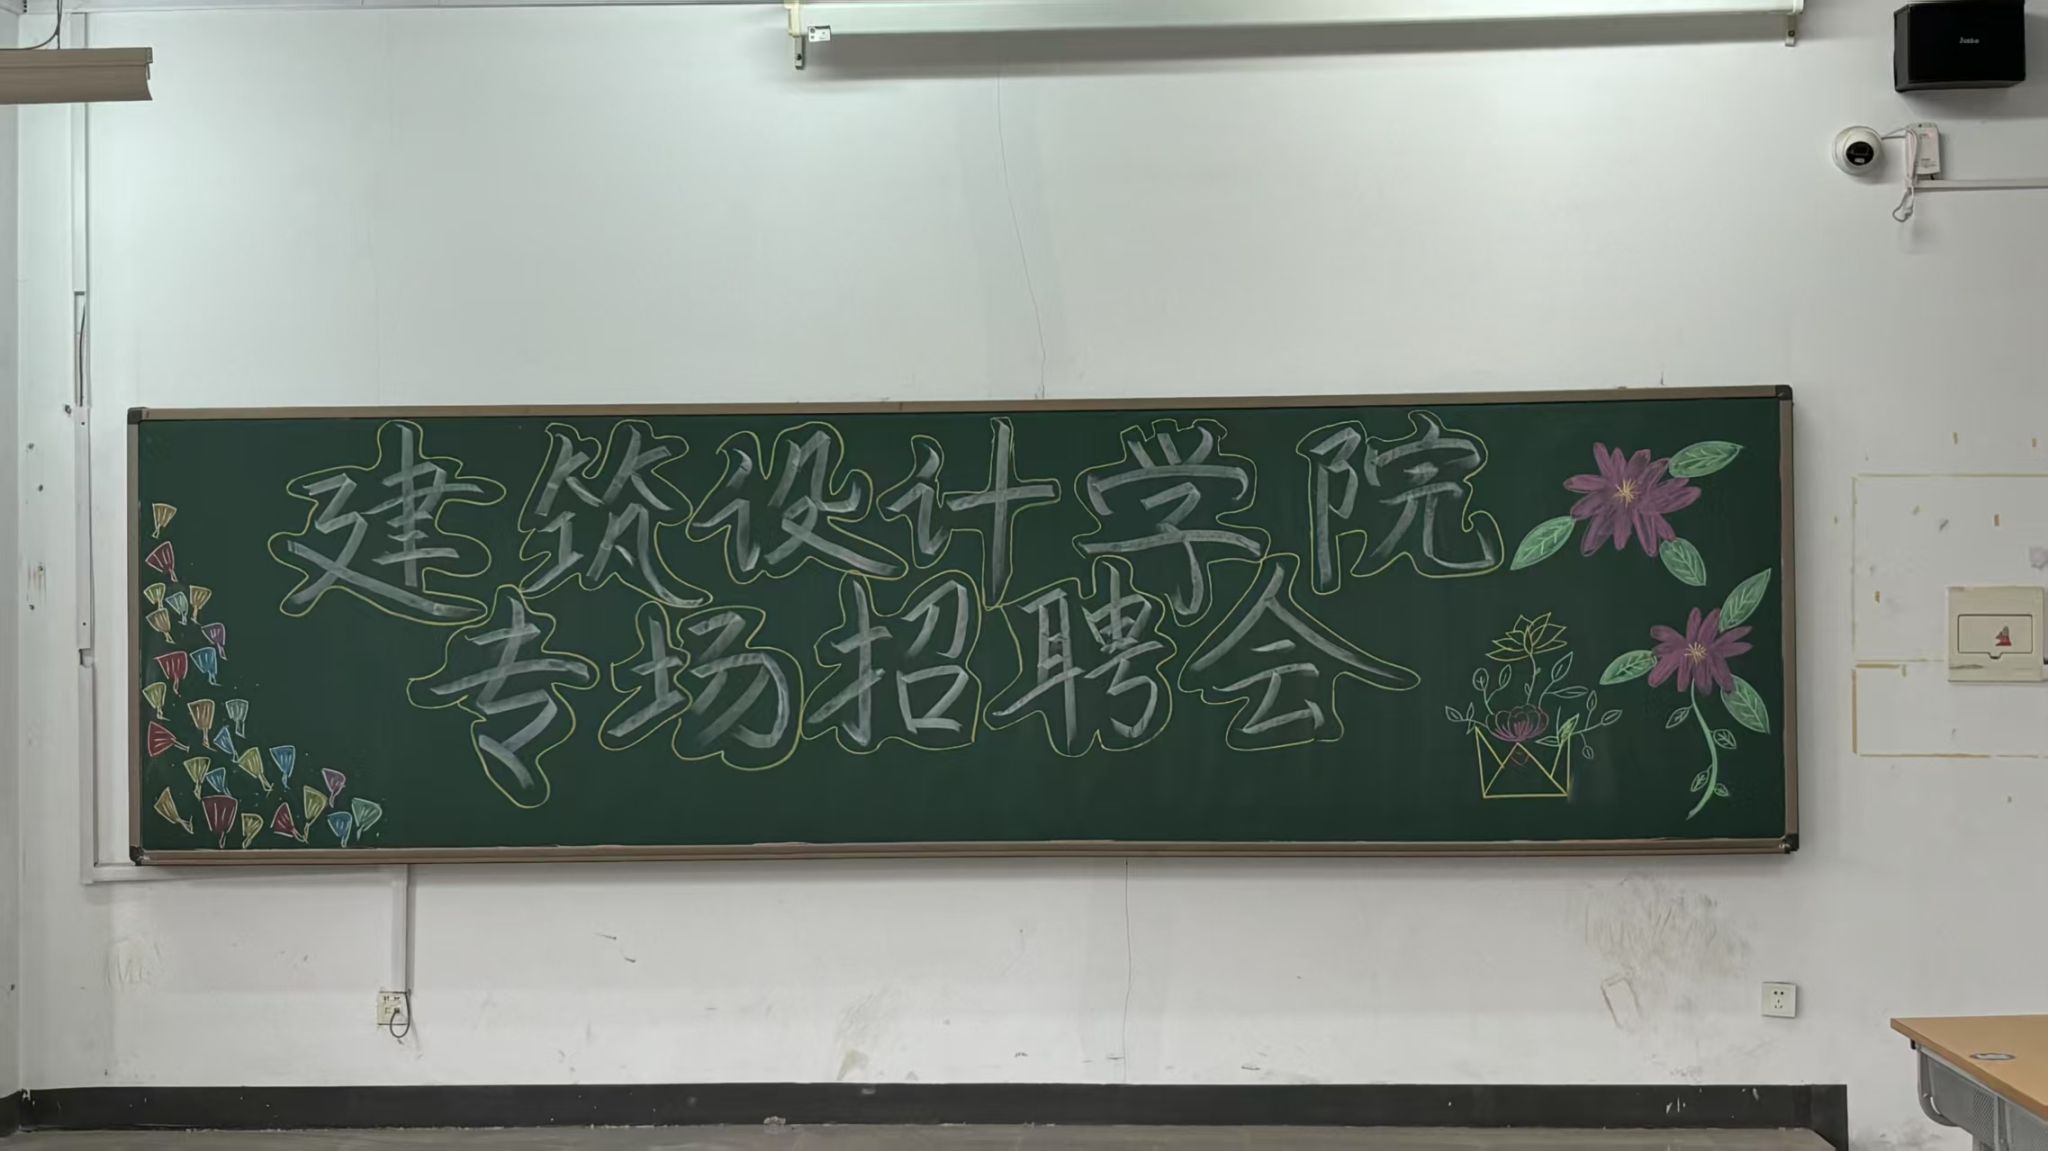 建筑设计学院
专场招聘会